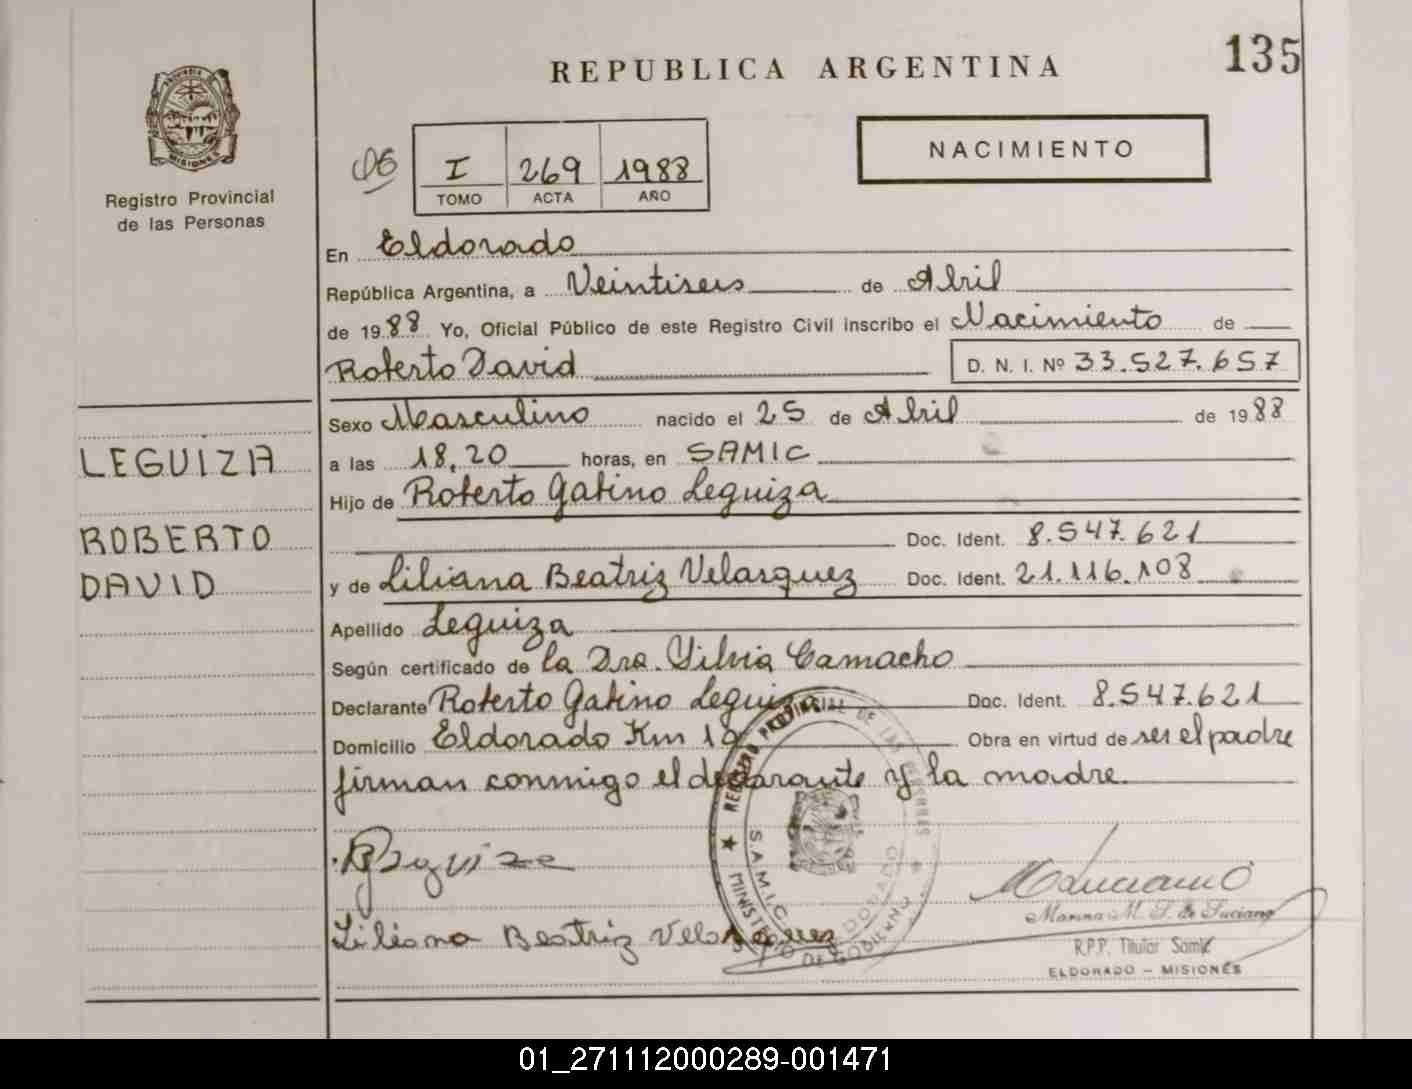 135
REPUBLICA ARGENTINA
PROVINCIA DE MISIONES
Registro Provincial
de las Personas
I 269 1988
TOMO ACTA AÑO
NACIMIENTO
En Eldorado
República Argentina, a Veintiseis de Abril
de 1988 Yo, Oficial Público de este Registro Civil inscribo el Nacimiento de
Roberto David D. N. I. Nº 33.527.657
Sexo Masculino nacido el 25 de Abril de 1988
LEGUIZA
a las 18,20 horas, en SAMIC
Hijo de Roberto Gabino Leguiza
ROBERTO
Doc. Ident. 8.547.621
DAVID
y de Liliana Beatriz Velasquez Doc. Ident. 21.116.108
Apellido Leguiza
Según certificado de la Dra. Silvia Camacho
Declarante Roberto Gabino Leguiza Doc. Ident. 8.547.621
Domicilio Eldorado Km 10 Obra en virtud de ser el padre
firman conmigo el declarante y la madre.
REGISTRO PROVINCIAL DE LAS PERSONAS
S.A.M.I.C. ELDORADO
MINISTERIO DE GOBIERNO
Liliana Beatriz Velasquez
R.P.P. Titular Samic
ELDORADO – MISIONES
01_271112000289-001471